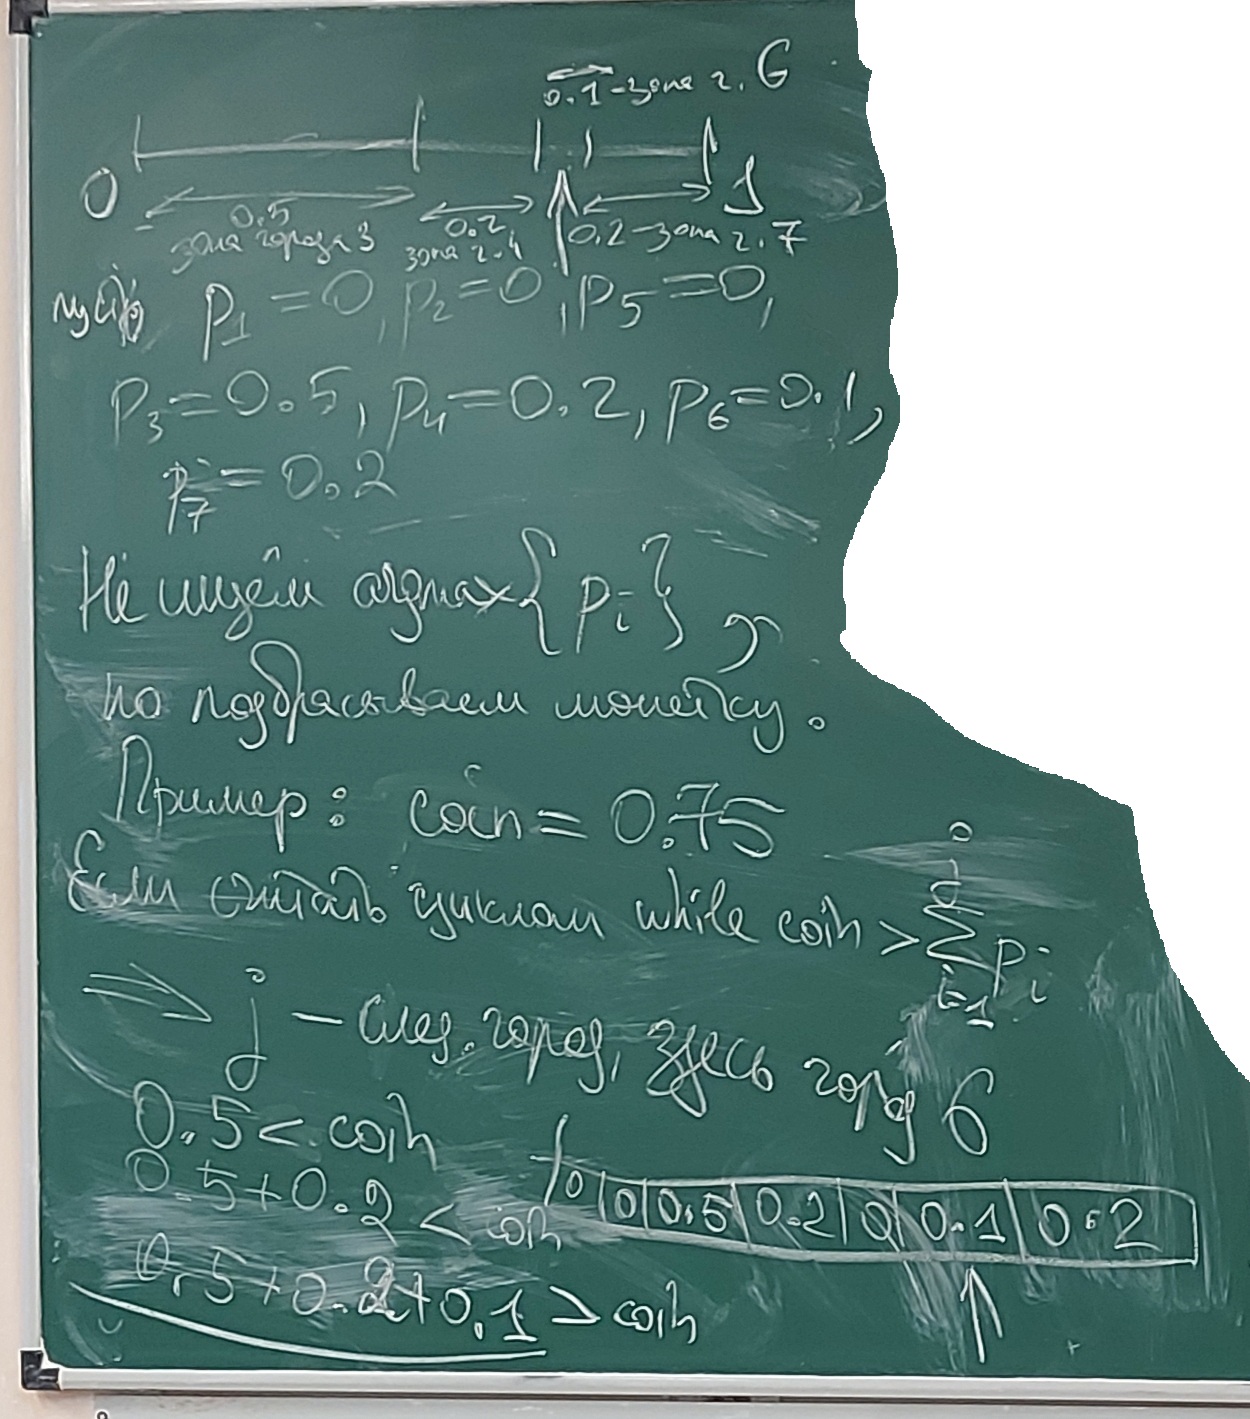 0.1-зона г. 6
0 1
0.5 0.2 0.2-зона г. 7
зона города 3 зона г. 4
пусть p₁=0, p₂=0, p₅=0,
p₃=0.5, p₄=0.2, p₆=0.1,
p₇=0.2
Не ищем argmax{pᵢ},
но подбрасываем монетку.
Пример: coin=0.75
Если считать циклом while coin > ∑ pᵢ
i=1
⇒ j – след. город, здесь город 6
0.5 < coin
0.5+0.2 < coin
0.5+0.2+0.1 > coin
0|0|0.5|0.2|0|0.1|0.2